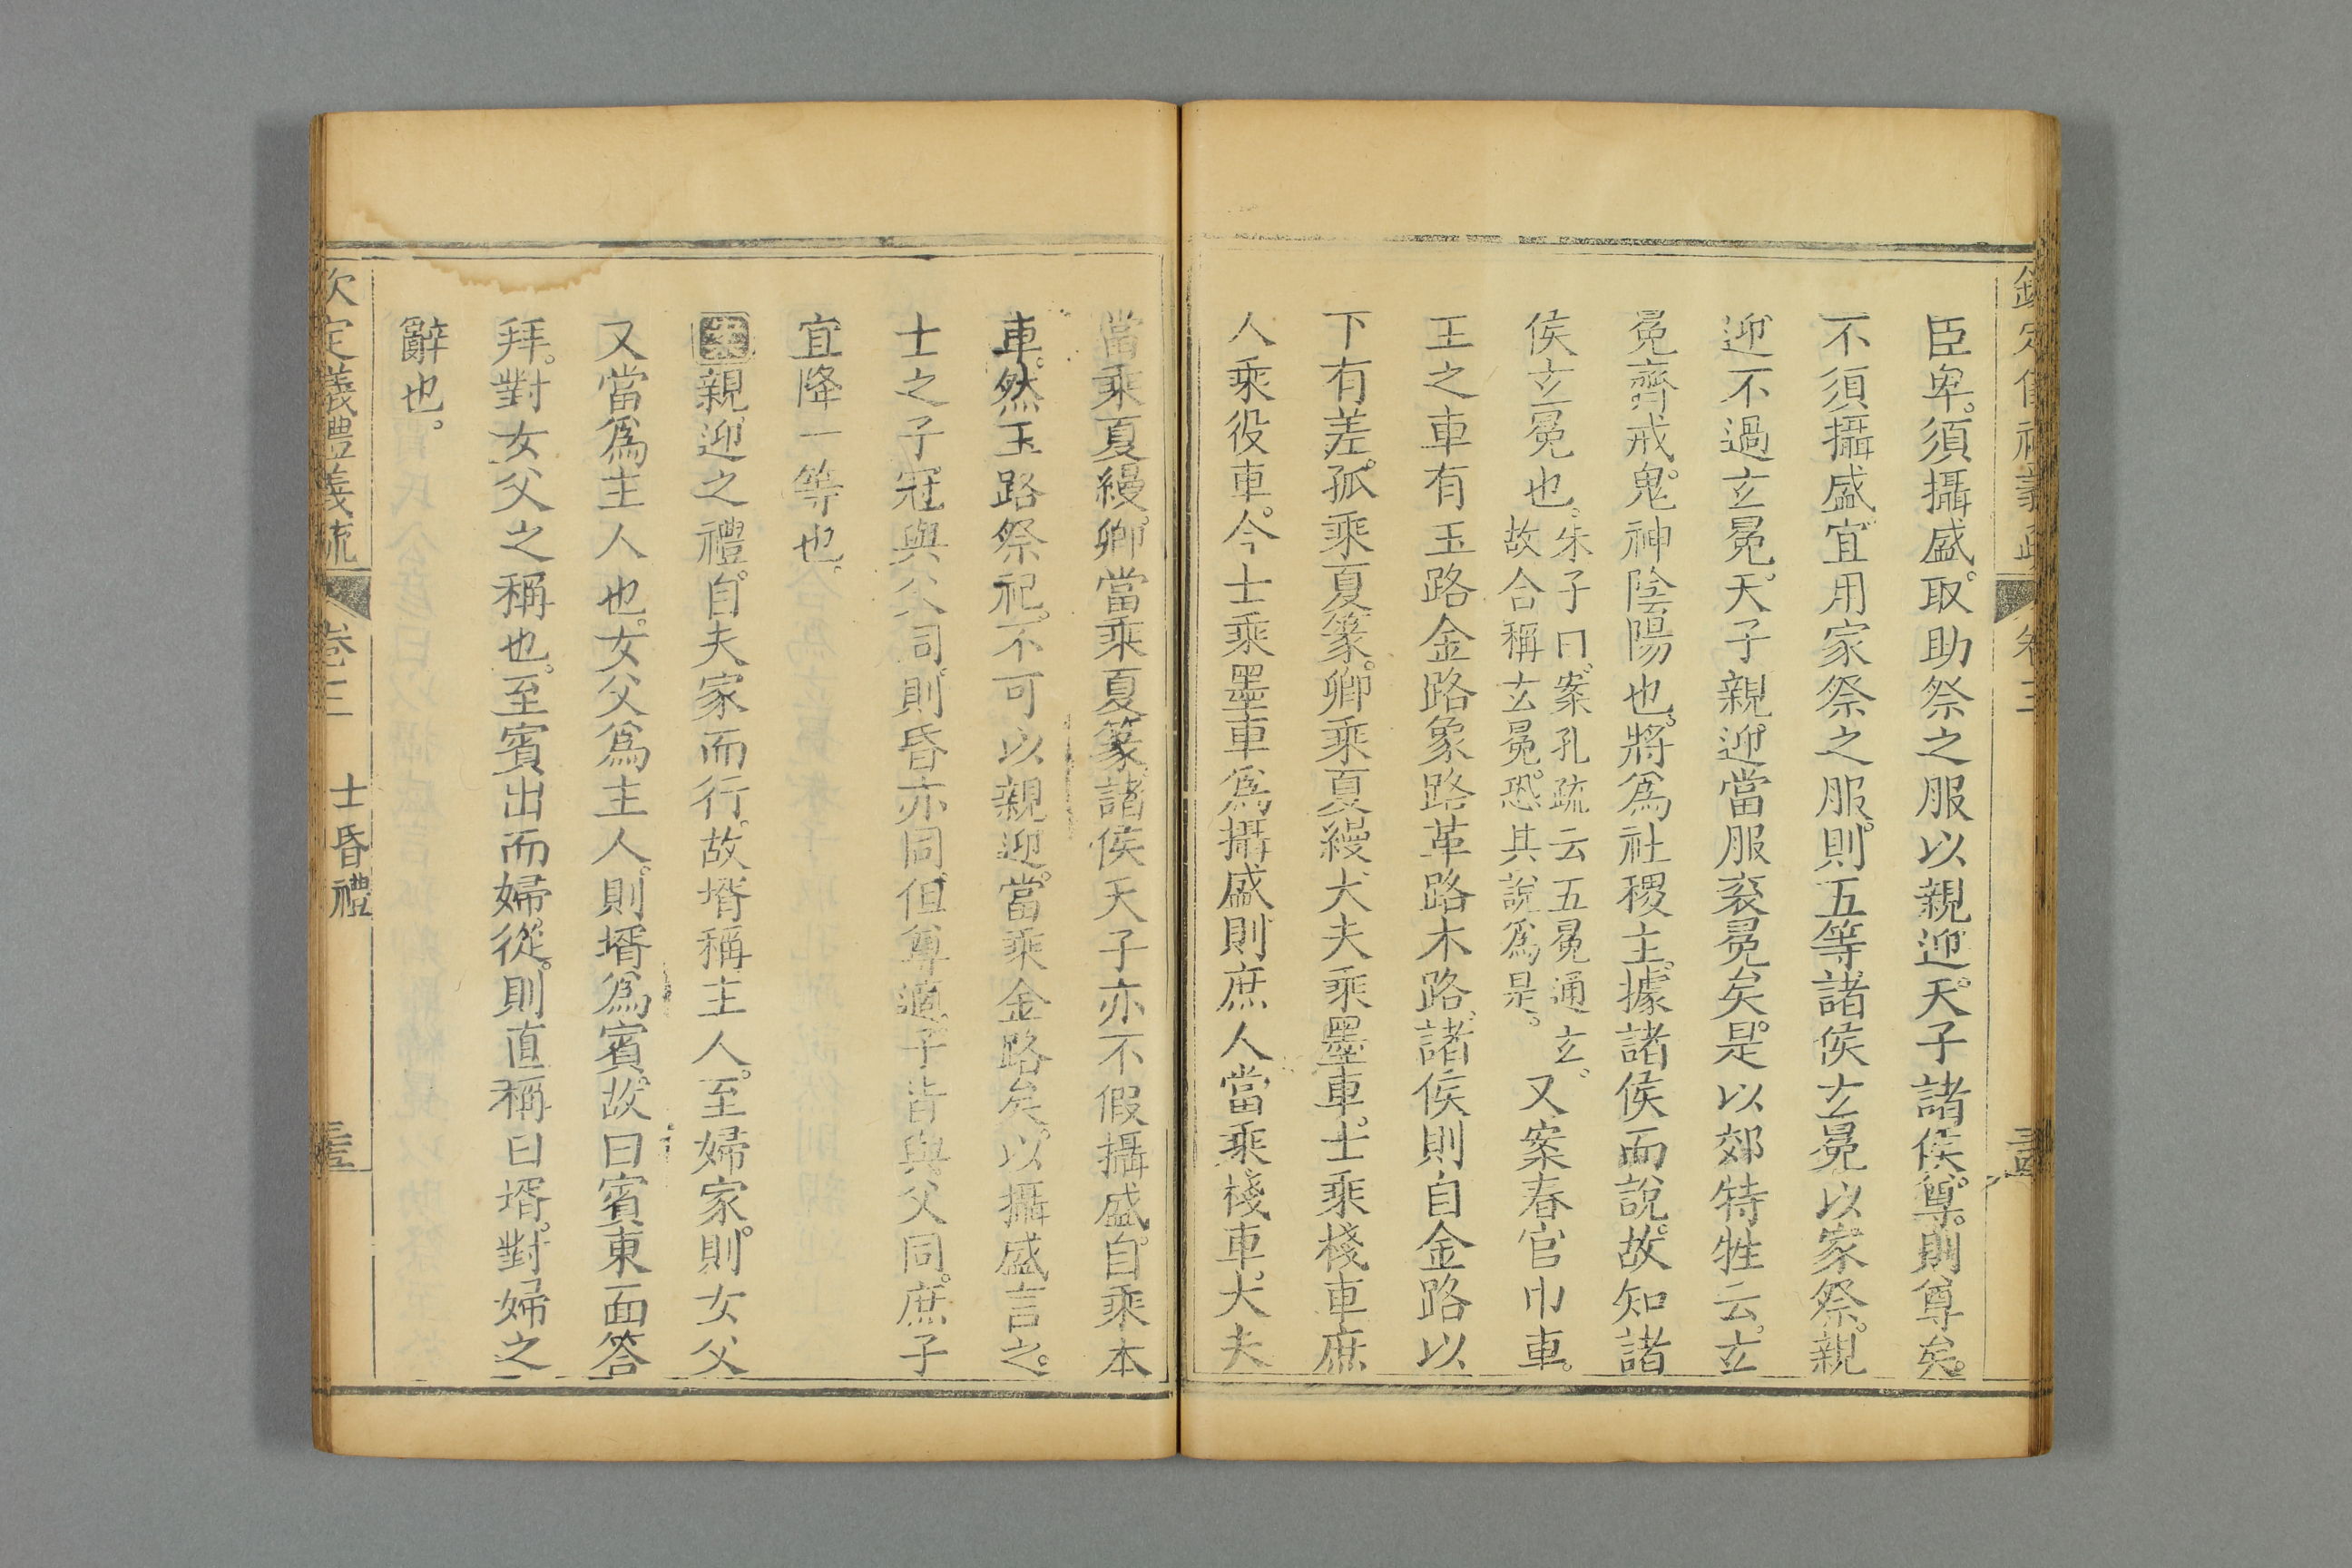 欽定儀禮義疏 卷三
臣卑。須攝盛。取助祭之服以親迎。天子諸侯尊。則尊矣。
不須攝盛。宜用家祭之服。則五等諸侯玄冕以家祭。親
迎不過玄冕。天子親迎當服袞冕矣。是以郊特牲云。玄
冕齊戒。鬼神陰陽也。將爲社稷主。據諸侯而說。故知諸
侯玄冕也。朱子曰。案孔疏云五冕通玄。故合稱玄冕。恐其說爲是。又案春官巾車。
王之車有玉路金路象路革路木路。諸侯則自金路以
下有差。孤乘夏篆。卿乘夏縵。大夫乘墨車。士乘棧車。庶
人乘役車。今士乘墨車爲攝盛。則庶人當乘棧車。大夫
當乘夏縵。卿當乘夏篆。諸侯天子亦不假攝盛。自乘本
車。然玉路祭祀。不可以親迎。當乘金路矣。以攝盛言之。
士之子冠與父同。則昏亦同。但尊適子皆與父同。庶子
宜降一等也。
案親迎之禮。自夫家而行。故壻稱主人。至婦家。則女父
又當爲主人也。女父爲主人。則壻爲賓。故曰賓東面答
拜。對女父之稱也。至賓出而婦從。則直稱曰壻。對婦之
辭也。
欽定儀禮義疏 卷三 士昏禮